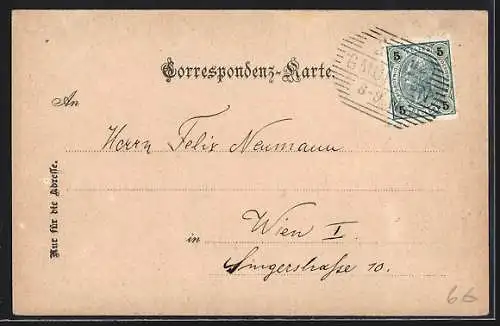 Correspondenz-Karte.
5 5
5 5
An
Herrn Felix Neumann
Wien I.
in
Singerstraße 10.
Nur für die Adresse.
66